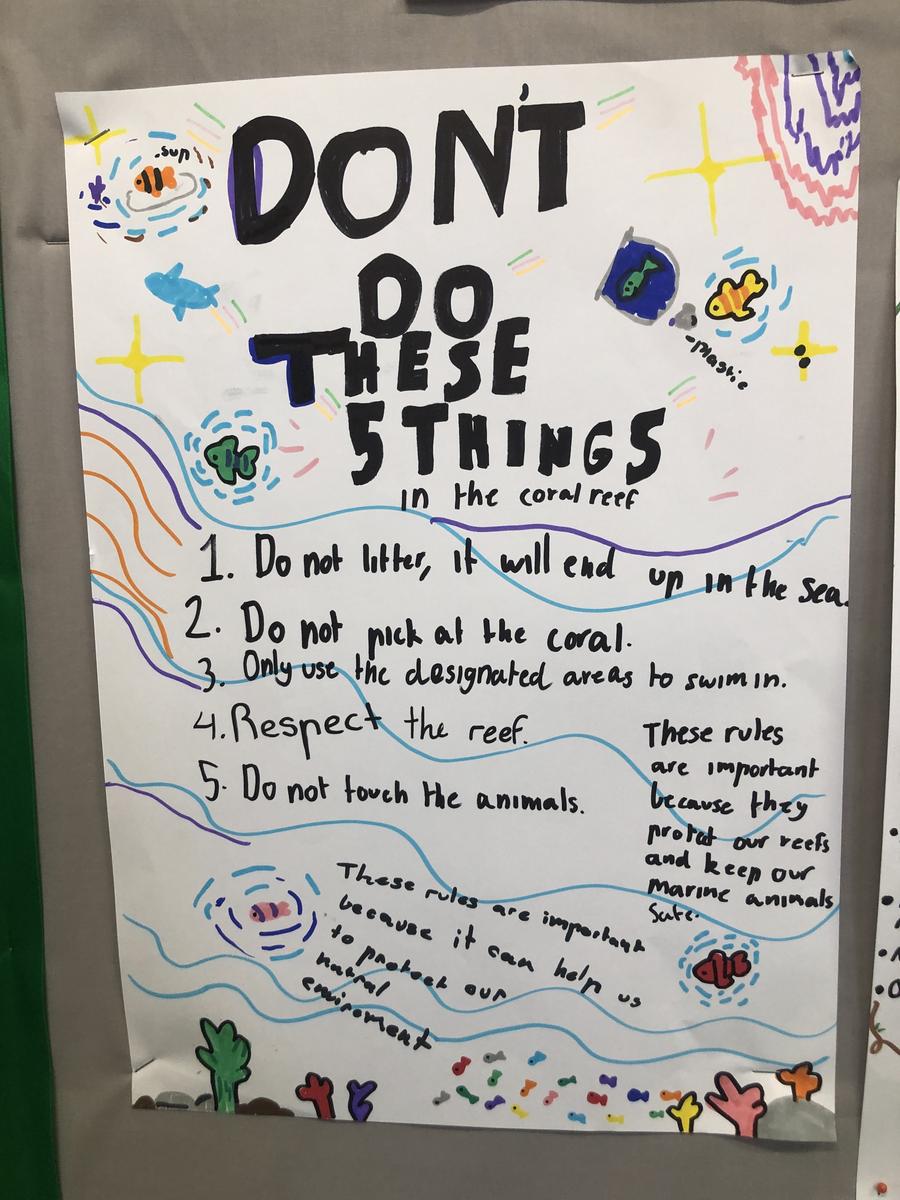 DON'T
DO
THESE
5 THINGS
in the coral reef
.sup
-Plastic
1. Do not litter, it will end up in the sea.
2. Do not pick at the coral.
3. Only use the designated areas to swim in.
4. Respect the reef.
5. Do not touch the animals.
These rules
are important
because they
protat our reefs
and keep our
marine animals
Safe.
These rules are important
because it can help us
to protect our
natral
enviroment